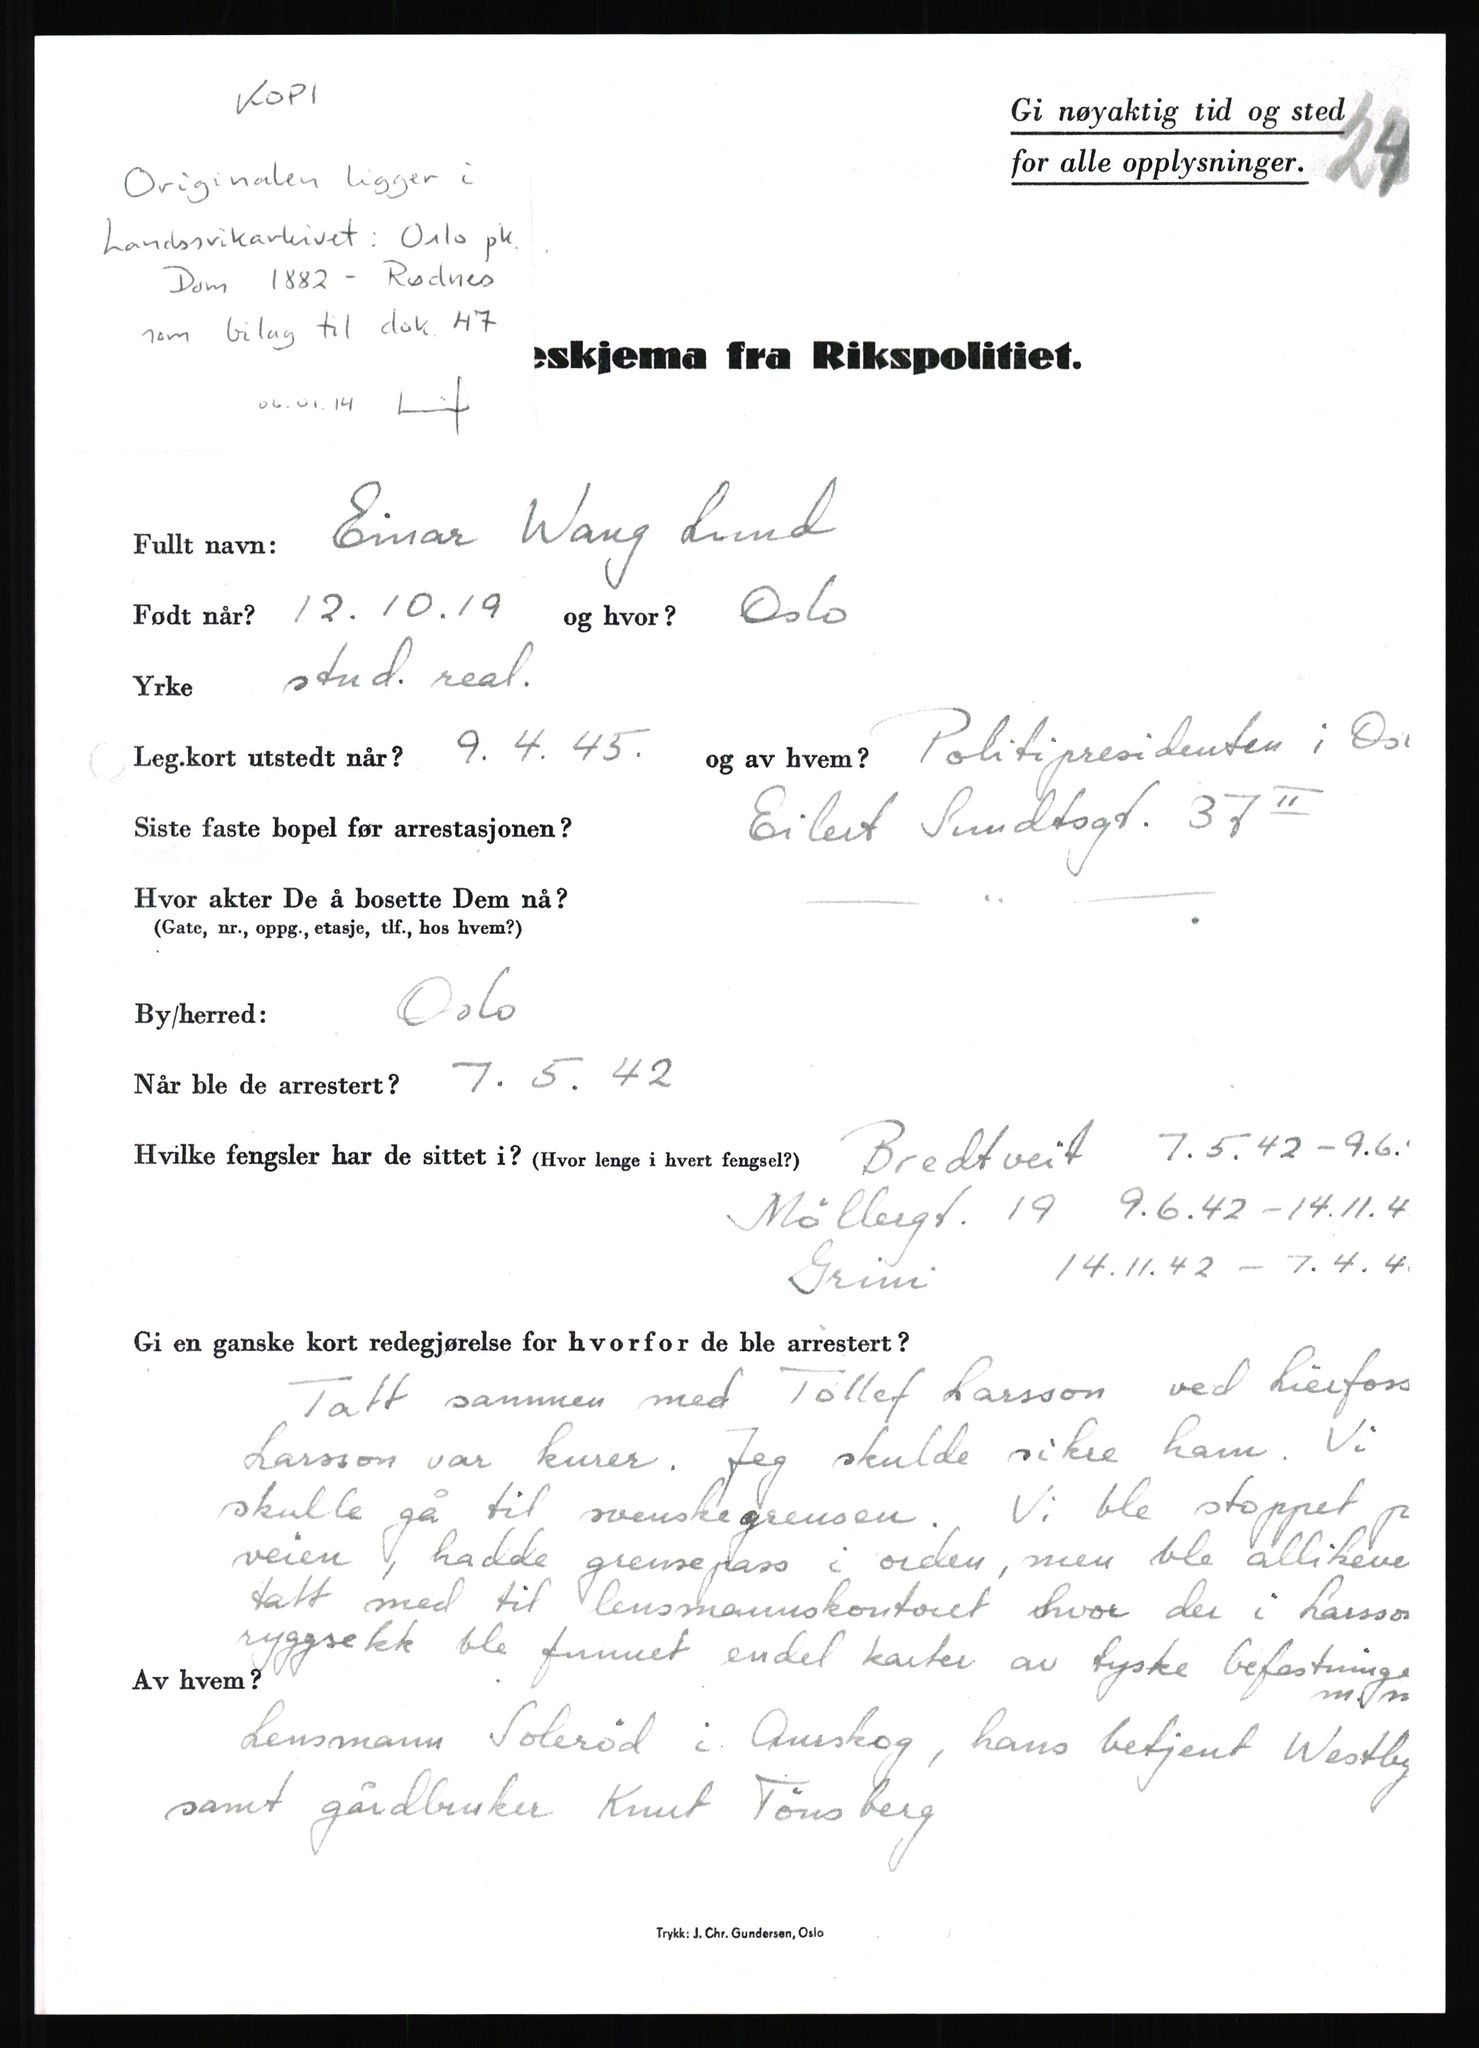 KOPI
Originalen ligger i
Landssvikarkivet: Oslo pk.
Dom 1882 - Rødnes
som bilag til dok. 47
06.01.14
Gi nøyaktig tid og sted
for alle opplysninger.
24
eskjema fra Rikspolitiet.
Fullt navn: Einar Wang Lund
Født når? 12.10.19 og hvor? Oslo
Yrke stud. real.
Leg.kort utstedt når? 9.4.45. og av hvem? Politipresidenten i Os
Siste faste bopel før arrestasjonen? Eilert Sundtsgt. 37 II
Hvor akter De å bosette Dem nå? — " —
(Gate, nr., oppg., etasje, tlf., hos hvem?)
By/herred: Oslo
Når ble de arrestert? 7.5.42
Hvilke fengsler har de sittet i? (Hvor lenge i hvert fengsel?) Bredtveit 7.5.42 - 9.6.
Möllergt. 19 9.6.42 - 14.11.4
Grini 14.11.42 - 7.4.4
Gi en ganske kort redegjørelse for hvorfor de ble arrestert?
Tatt sammen med Tollef Larsson ved Lierfoss
Larsson var kurer. Jeg skulde sikre ham. Vi
skulle gå til svenskegrensen. Vi ble stoppet p
veien, hadde grensepass i orden, men ble allikeve
tatt med til lensmannskontoret hvor der i Larsson
ryggsekk ble funnet endel karter av tyske befestninge
m.m
Av hvem?
Lensmann Soleröd i Aurskog, hans betjent Westby
samt gårdbruker Knut Tönsberg
Trykk: J. Chr. Gundersen, Oslo